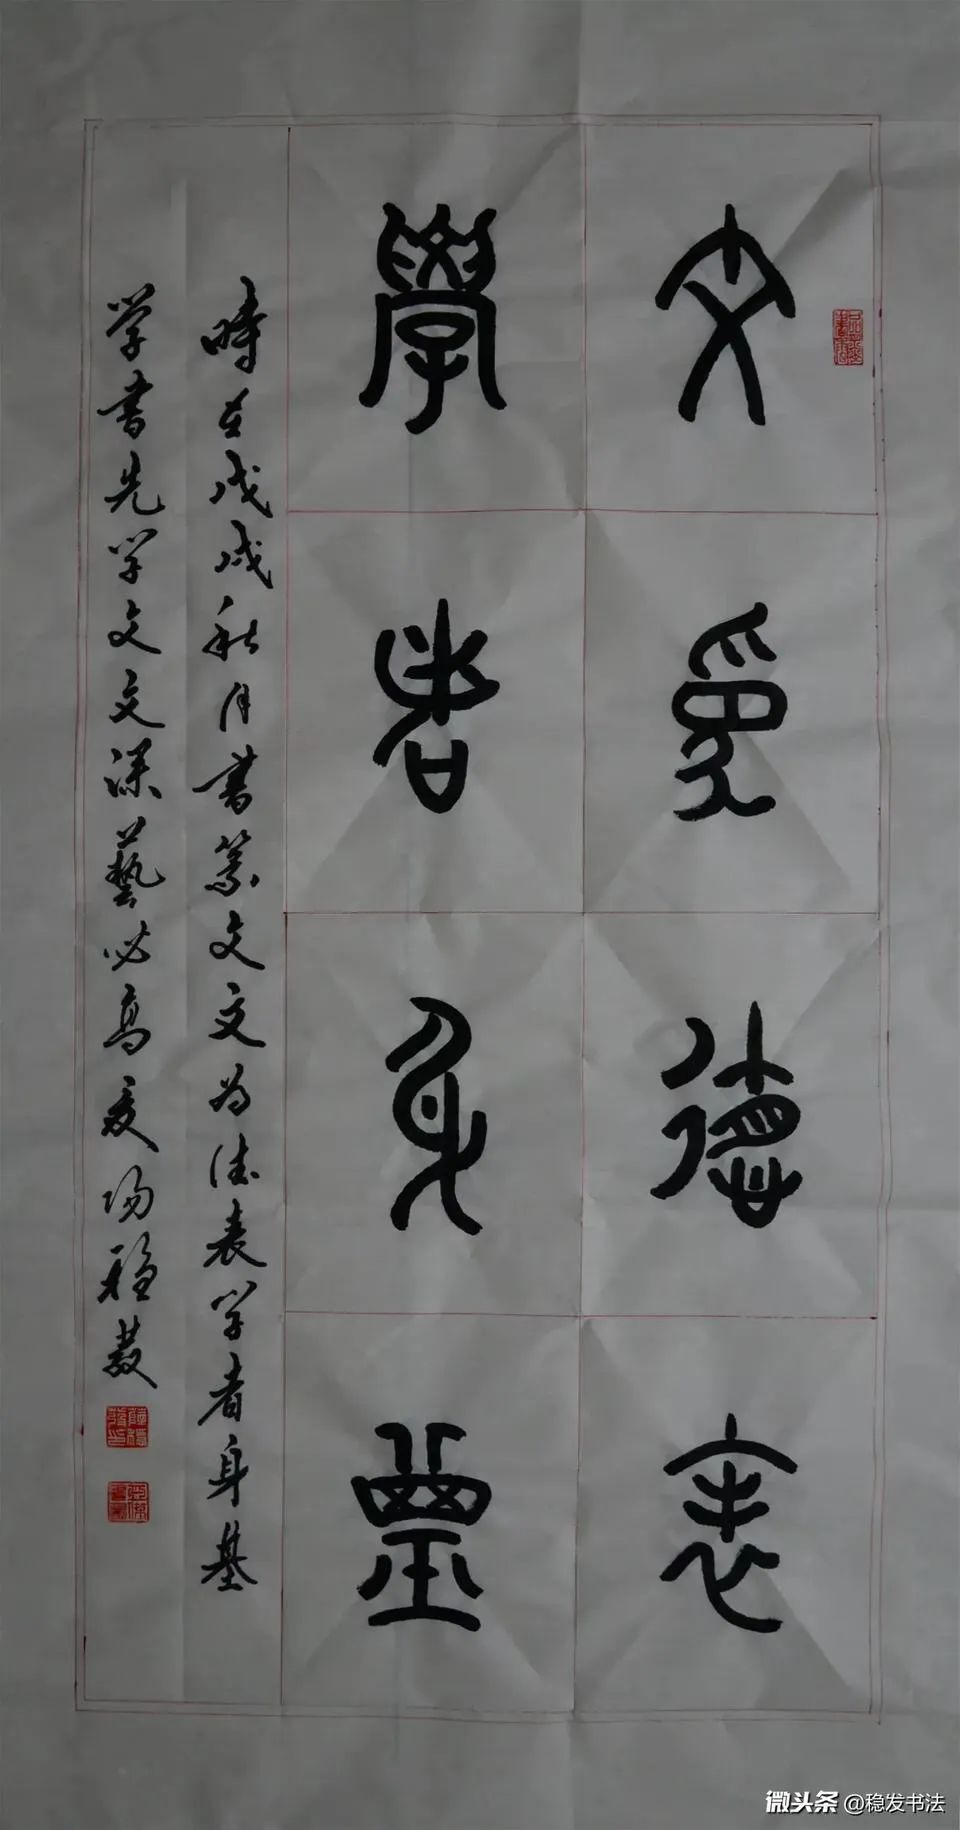 文為德表
學者身基
時在戊戌秋月書篆文文为德表学者身基
学書先学文文深藝必高夏阳稳發
微头条 @稳发书法